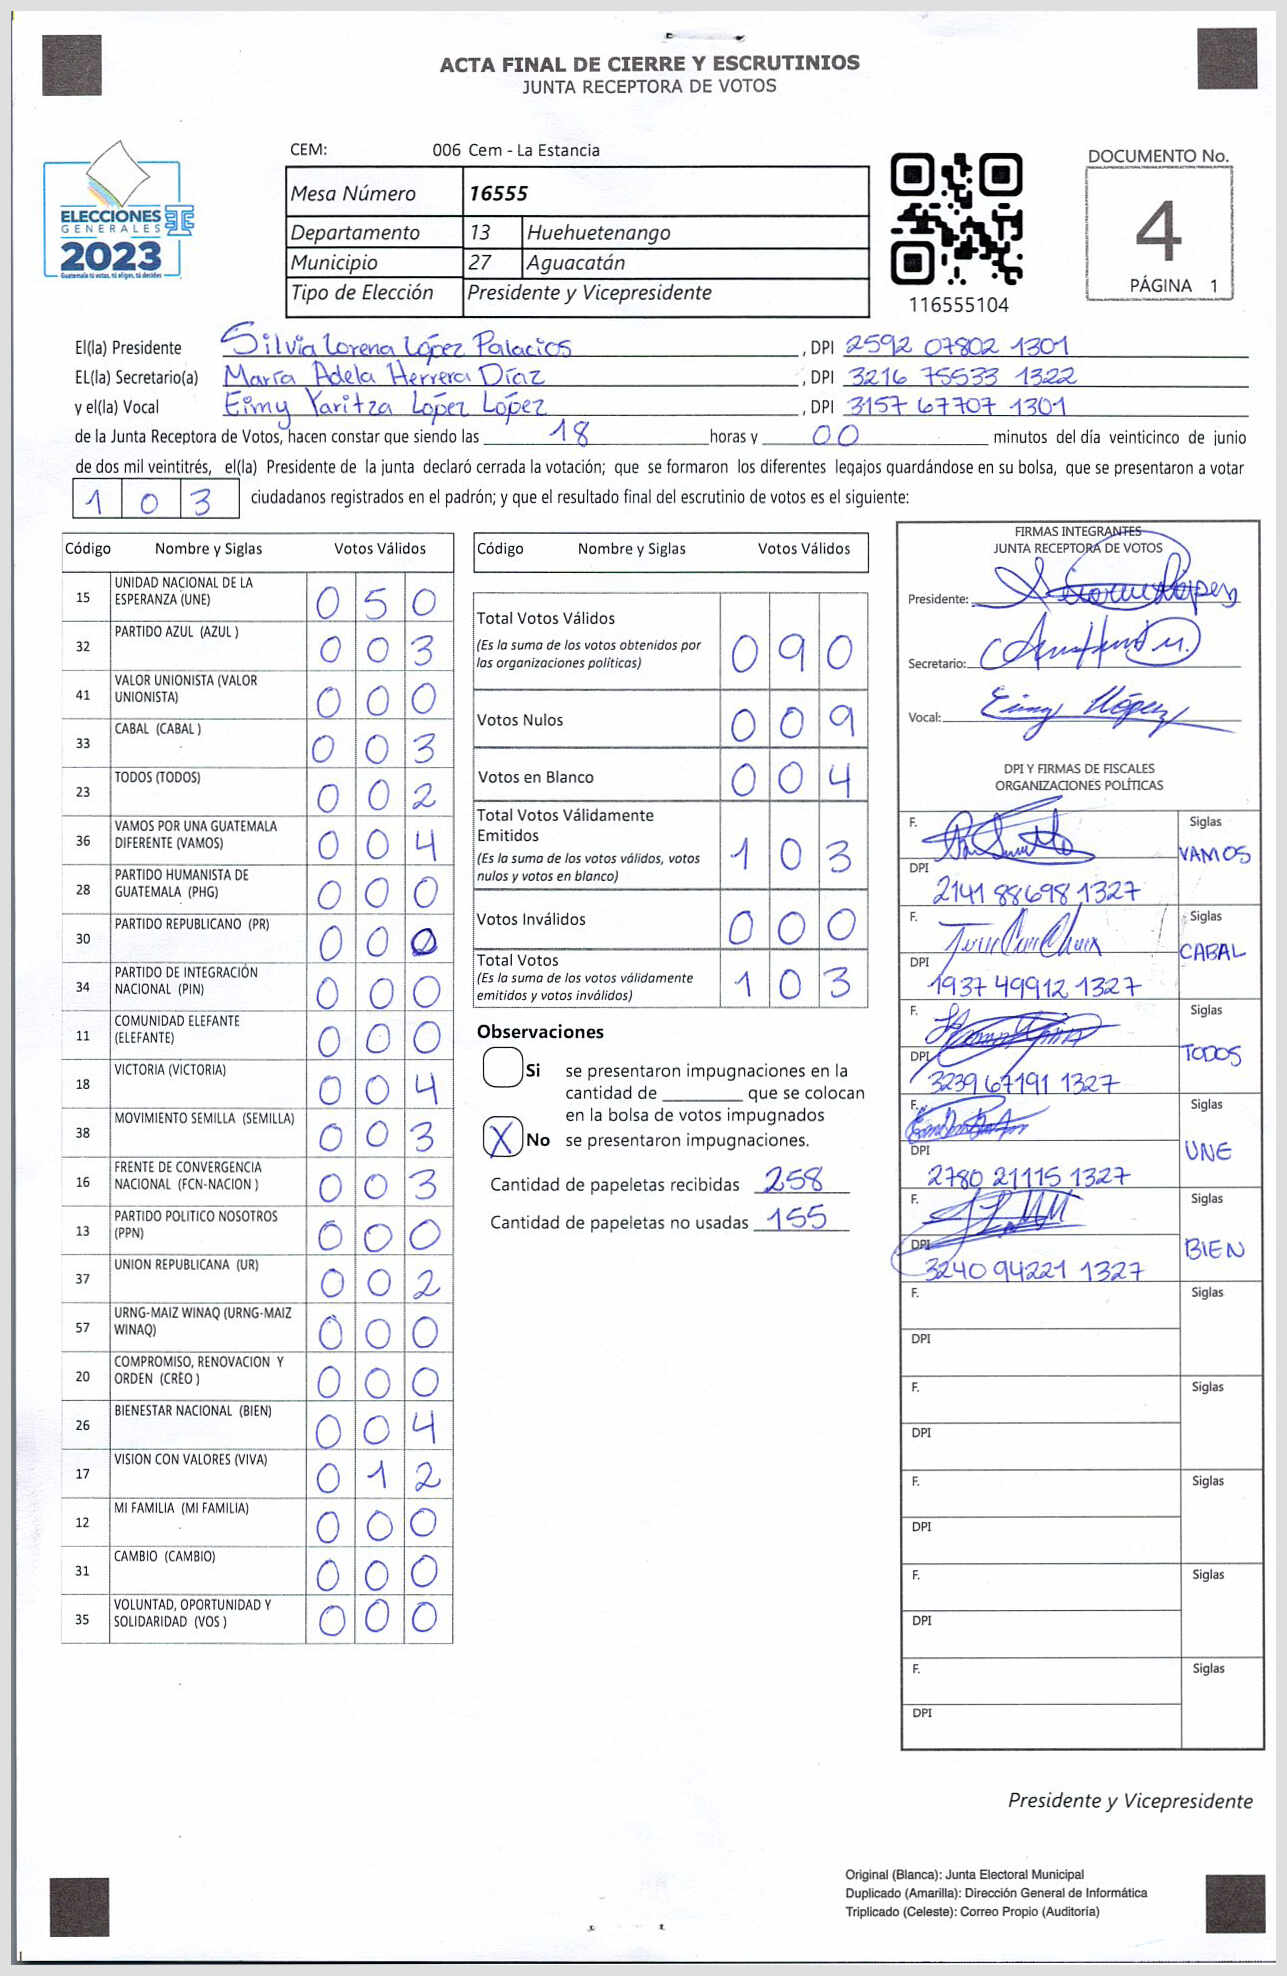 ACTA FINAL DE CIERRE Y ESCRUTINIOS
JUNTA RECEPTORA DE VOTOS
ELECCIONES
GENERALES
2023
Guatemala tú votas, tú eliges, tú decides
CEM: 006 Cem - La Estancia
Mesa Número 16555
Departamento 13 Huehuetenango
Municipio 27 Aguacatán
Tipo de Elección Presidente y Vicepresidente
116555104
DOCUMENTO No.
4
PÁGINA 1
El(la) Presidente Silvia Lorena López Palacios , DPI 2592 07802 1301
EL(la) Secretario(a) María Adela Herrera Díaz , DPI 3216 75533 1322
y el(la) Vocal Eimy Yaritza López López , DPI 3157 67707 1301
de la Junta Receptora de Votos, hacen constar que siendo las 18 horas y 00 minutos del día veinticinco de junio
de dos mil veintitrés, el(la) Presidente de la junta declaró cerrada la votación; que se formaron los diferentes legajos guardándose en su bolsa, que se presentaron a votar
1 0 3 ciudadanos registrados en el padrón; y que el resultado final del escrutinio de votos es el siguiente:
Código Nombre y Siglas Votos Válidos
15 UNIDAD NACIONAL DE LA
ESPERANZA (UNE) 0 5 0
32 PARTIDO AZUL (AZUL ) 0 0 3
41 VALOR UNIONISTA (VALOR
UNIONISTA) 0 0 0
33 CABAL (CABAL ) 0 0 3
23 TODOS (TODOS) 0 0 2
36 VAMOS POR UNA GUATEMALA
DIFERENTE (VAMOS) 0 0 4
28 PARTIDO HUMANISTA DE
GUATEMALA (PHG) 0 0 0
30 PARTIDO REPUBLICANO (PR) 0 0 0
34 PARTIDO DE INTEGRACIÓN
NACIONAL (PIN) 0 0 0
11 COMUNIDAD ELEFANTE
(ELEFANTE) 0 0 0
18 VICTORIA (VICTORIA) 0 0 4
38 MOVIMIENTO SEMILLA (SEMILLA) 0 0 3
16 FRENTE DE CONVERGENCIA
NACIONAL (FCN-NACION ) 0 0 3
13 PARTIDO POLITICO NOSOTROS
(PPN) 0 0 0
37 UNION REPUBLICANA (UR) 0 0 2
57 URNG-MAIZ WINAQ (URNG-MAIZ
WINAQ) 0 0 0
20 COMPROMISO, RENOVACION Y
ORDEN (CREO ) 0 0 0
26 BIENESTAR NACIONAL (BIEN) 0 0 4
17 VISION CON VALORES (VIVA) 0 1 2
12 MI FAMILIA (MI FAMILIA) 0 0 0
31 CAMBIO (CAMBIO) 0 0 0
35 VOLUNTAD, OPORTUNIDAD Y
SOLIDARIDAD (VOS ) 0 0 0
Código Nombre y Siglas Votos Válidos
Total Votos Válidos
(Es la suma de los votos obtenidos por
las organizaciones políticas) 0 9 0
Votos Nulos 0 0 9
Votos en Blanco 0 0 4
Total Votos Válidamente
Emitidos
(Es la suma de los votos válidos, votos
nulos y votos en blanco) 1 0 3
Votos Inválidos 0 0 0
Total Votos
(Es la suma de los votos válidamente
emitidos y votos inválidos) 1 0 3
Observaciones
Si se presentaron impugnaciones en la
cantidad de ________ que se colocan
en la bolsa de votos impugnados
X No se presentaron impugnaciones.
Cantidad de papeletas recibidas 258
Cantidad de papeletas no usadas 155
FIRMAS INTEGRANTES
JUNTA RECEPTORA DE VOTOS
Presidente:
Secretario:
Vocal: Eimy López
DPI Y FIRMAS DE FISCALES
ORGANIZACIONES POLÍTICAS
F. Siglas
VAMOS
DPI
2141 88698 1327
F. Siglas
CABAL
DPI
1937 49912 1327
F. Siglas
TODOS
DPI
3239 67191 1327
F. Siglas
UNE
DPI
2780 21115 1327
F. Siglas
BIEN
DPI
3240 94221 1327
F. Siglas
DPI
F. Siglas
DPI
F. Siglas
DPI
F. Siglas
DPI
F. Siglas
DPI
Presidente y Vicepresidente
Original (Blanca): Junta Electoral Municipal
Duplicado (Amarilla): Dirección General de Informática
Triplicado (Celeste): Correo Propio (Auditoría)